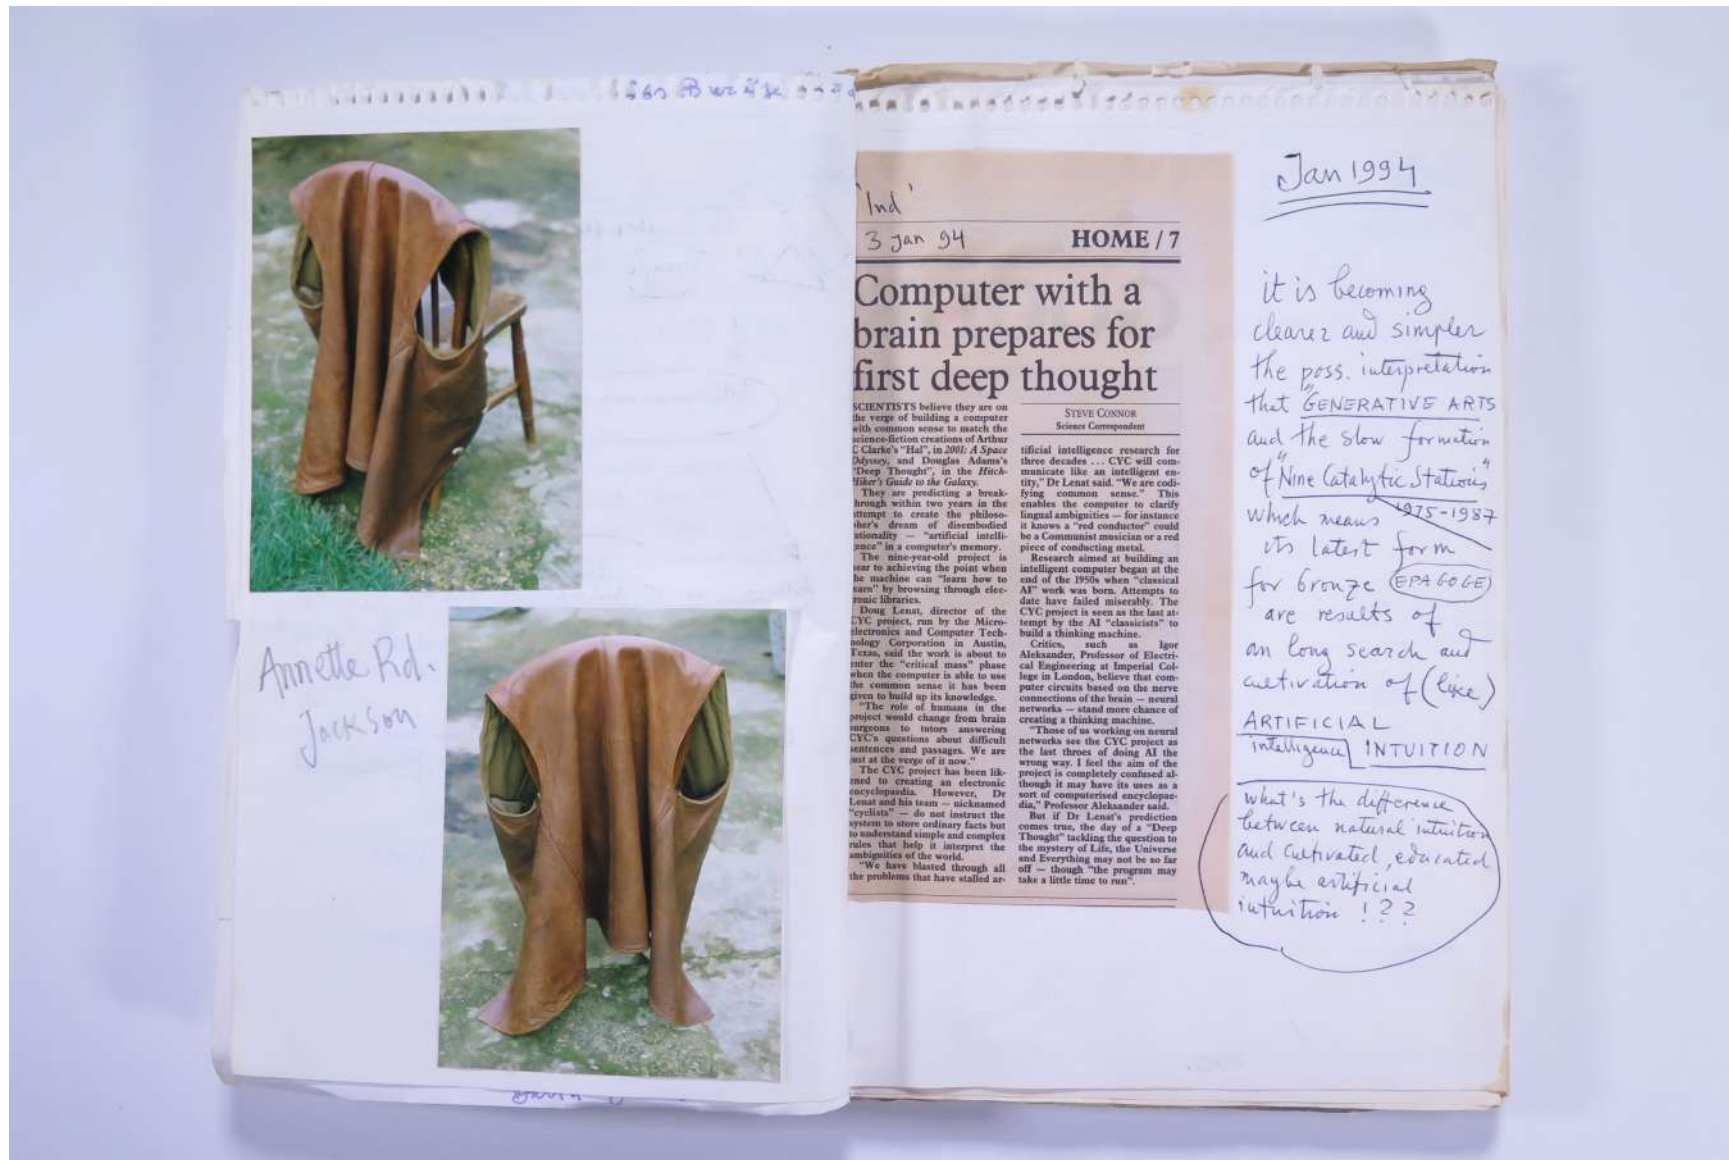 Annette Rd.
Jackson
'Ind'
3 Jan 94
HOME / 7
Computer with a
brain prepares for
first deep thought
SCIENTISTS believe they are on
the verge of building a computer
with common sense to match the
science-fiction creations of Arthur
C Clarke's "Hal", in 2001: A Space
Odyssey, and Douglas Adams's
"Deep Thought", in the Hitch-
Hiker's Guide to the Galaxy.
They are predicting a break-
through within two years in the
attempt to create the philoso-
pher's dream of disembodied
rationality — "artificial intelli-
gence" in a computer's memory.
The nine-year-old project is
near to achieving the point when
the machine can "learn how to
learn" by browsing through elec-
tronic libraries.
Doug Lenat, director of the
CYC project, run by the Micro-
electronics and Computer Tech-
nology Corporation in Austin,
Texas, said the work is about to
enter the "critical mass" phase
when the computer is able to use
the common sense it has been
given to build up its knowledge.
"The role of humans in the
project would change from brain
surgeons to tutors answering
CYC's questions about difficult
sentences and passages. We are
just at the verge of it now."
The CYC project has been lik-
ened to creating an electronic
encyclopaedia. However, Dr
Lenat and his team — nicknamed
"cyclists" — do not instruct the
system to store ordinary facts but
to understand simple and complex
rules that help it interpret the
ambiguities of the world.
"We have blasted through all
the problems that have stalled ar-
STEVE CONNOR
Science Correspondent
tificial intelligence research for
three decades ... CYC will com-
municate like an intelligent en-
tity," Dr Lenat said. "We are codi-
fying common sense." This
enables the computer to clarify
lingual ambiguities — for instance
it knows a "red conductor" could
be a Communist musician or a red
piece of conducting metal.
Research aimed at building an
intelligent computer began at the
end of the 1950s when "classical
AI" work was born. Attempts to
date have failed miserably. The
CYC project is seen as the last at-
tempt by the AI "classicists" to
build a thinking machine.
Critics, such as Igor
Aleksander, Professor of Electri-
cal Engineering at Imperial Col-
lege in London, believe that com-
puter circuits based on the nerve
connections of the brain — neural
networks — stand more chance of
creating a thinking machine.
"Those of us working on neural
networks see the CYC project as
the last throes of doing AI the
wrong way. I feel the aim of the
project is completely confused al-
though it may have its uses as a
sort of computerised encyclopae-
dia," Professor Aleksander said.
But if Dr Lenat's prediction
comes true, the day of a "Deep
Thought" tackling the question to
the mystery of Life, the Universe
and Everything may not be so far
off — though "the program may
take a little time to run".
Jan 1994
it is becoming
clearer and simpler
the poss. interpretation
that "GENERATIVE ARTS
and the slow formation
of "Nine Catalytic Stations"
1975-1987
which means
its latest form
for bronze (EPAGOGE)
are results of
an long search and
cultivation of (like)
ARTIFICIAL
intelligence INTUITION
what's the difference
between natural intuition
and cultivated, educated
maybe artificial
intuition !??